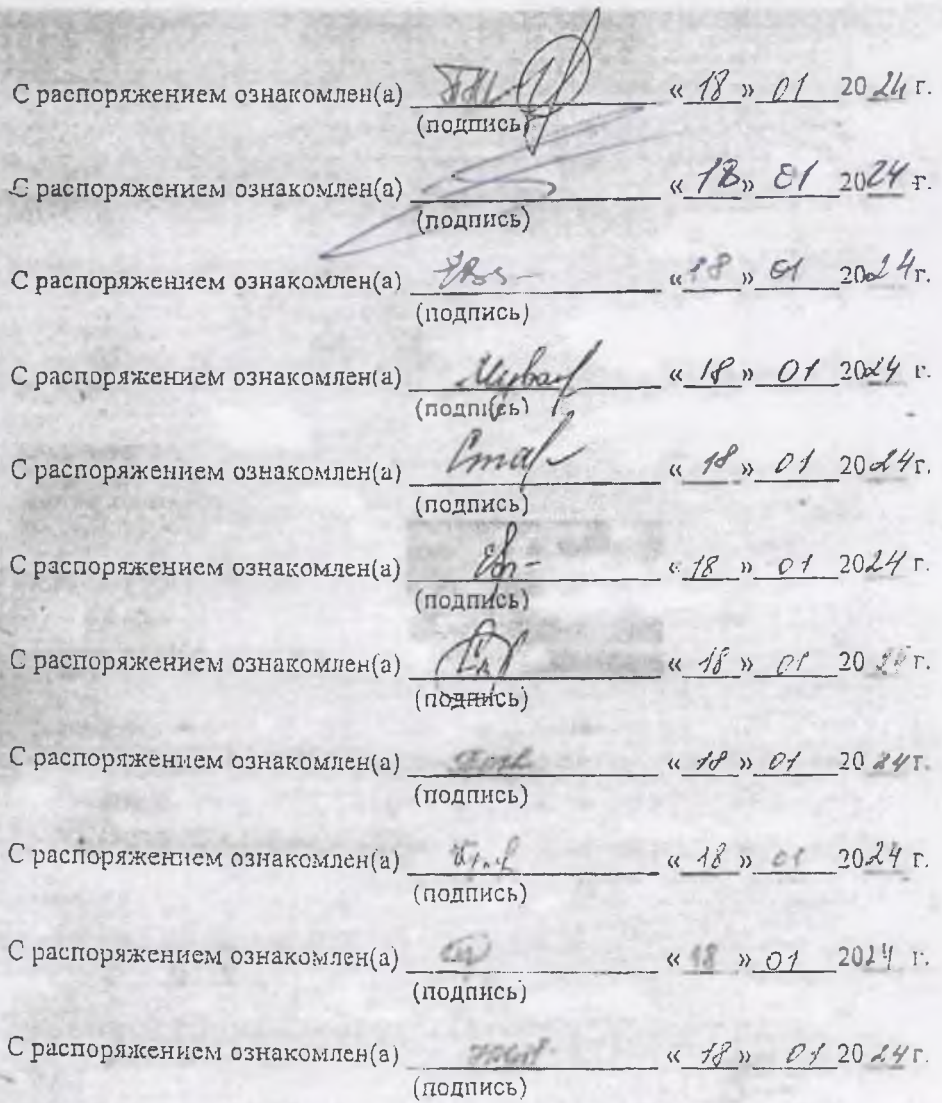 С распоряжением ознакомлен(а) « 18 » 01 20 24 г.
(подпись)
С распоряжением ознакомлен(а) « 18 » 01 20 24 г.
(подпись)
С распоряжением ознакомлен(а) « 18 » 01 20 24 г.
(подпись)
С распоряжением ознакомлен(а) « 18 » 01 20 24 г.
(подпись)
С распоряжением ознакомлен(а) « 18 » 01 20 24 г.
(подпись)
С распоряжением ознакомлен(а) « 18 » 01 20 24 г.
(подпись)
С распоряжением ознакомлен(а) « 18 » 01 20 г.
(подпись)
С распоряжением ознакомлен(а) « 18 » 01 20 24 г.
(подпись)
С распоряжением ознакомлен(а) « 18 » 01 20 24 г.
(подпись)
С распоряжением ознакомлен(а) « 18 » 01 20 24 г.
(подпись)
С распоряжением ознакомлен(а) « 18 » 01 20 24 г.
(подпись)